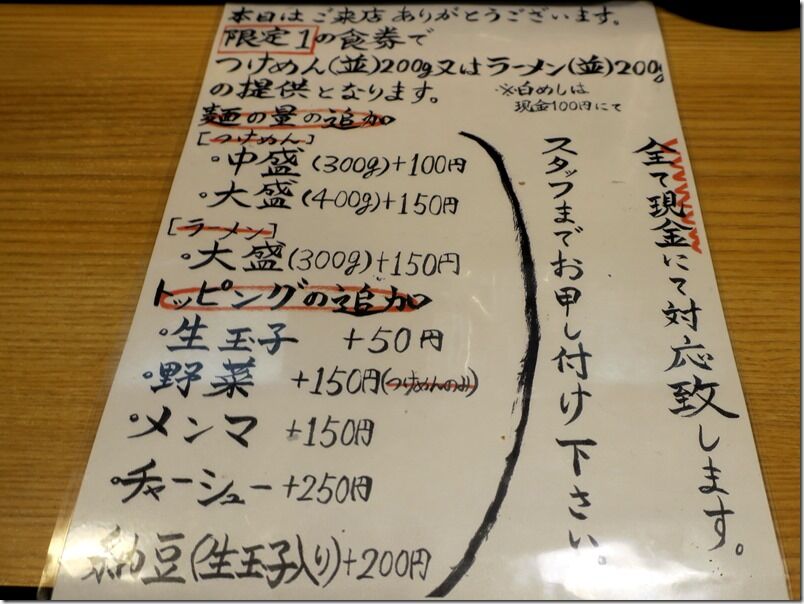 本日はご来店ありがとうございます。
限定1の食券で
つけめん(並)200g又はラーメン(並)200g
の提供となります。
※白めしは
現金100円にて
麺の量の追加
[つけめん]
・中盛(300g)+100円
・大盛(400g)+150円
[ラーメン]
・大盛(300g)+150円
トッピングの追加
・生玉子 +50円
・野菜 +150円(つけめんのみ)
・メンマ +150円
・チャーシュー +250円
納豆(生玉子入り)+200円
全て現金にて対応致します。
スタッフまでお申し付け下さい。